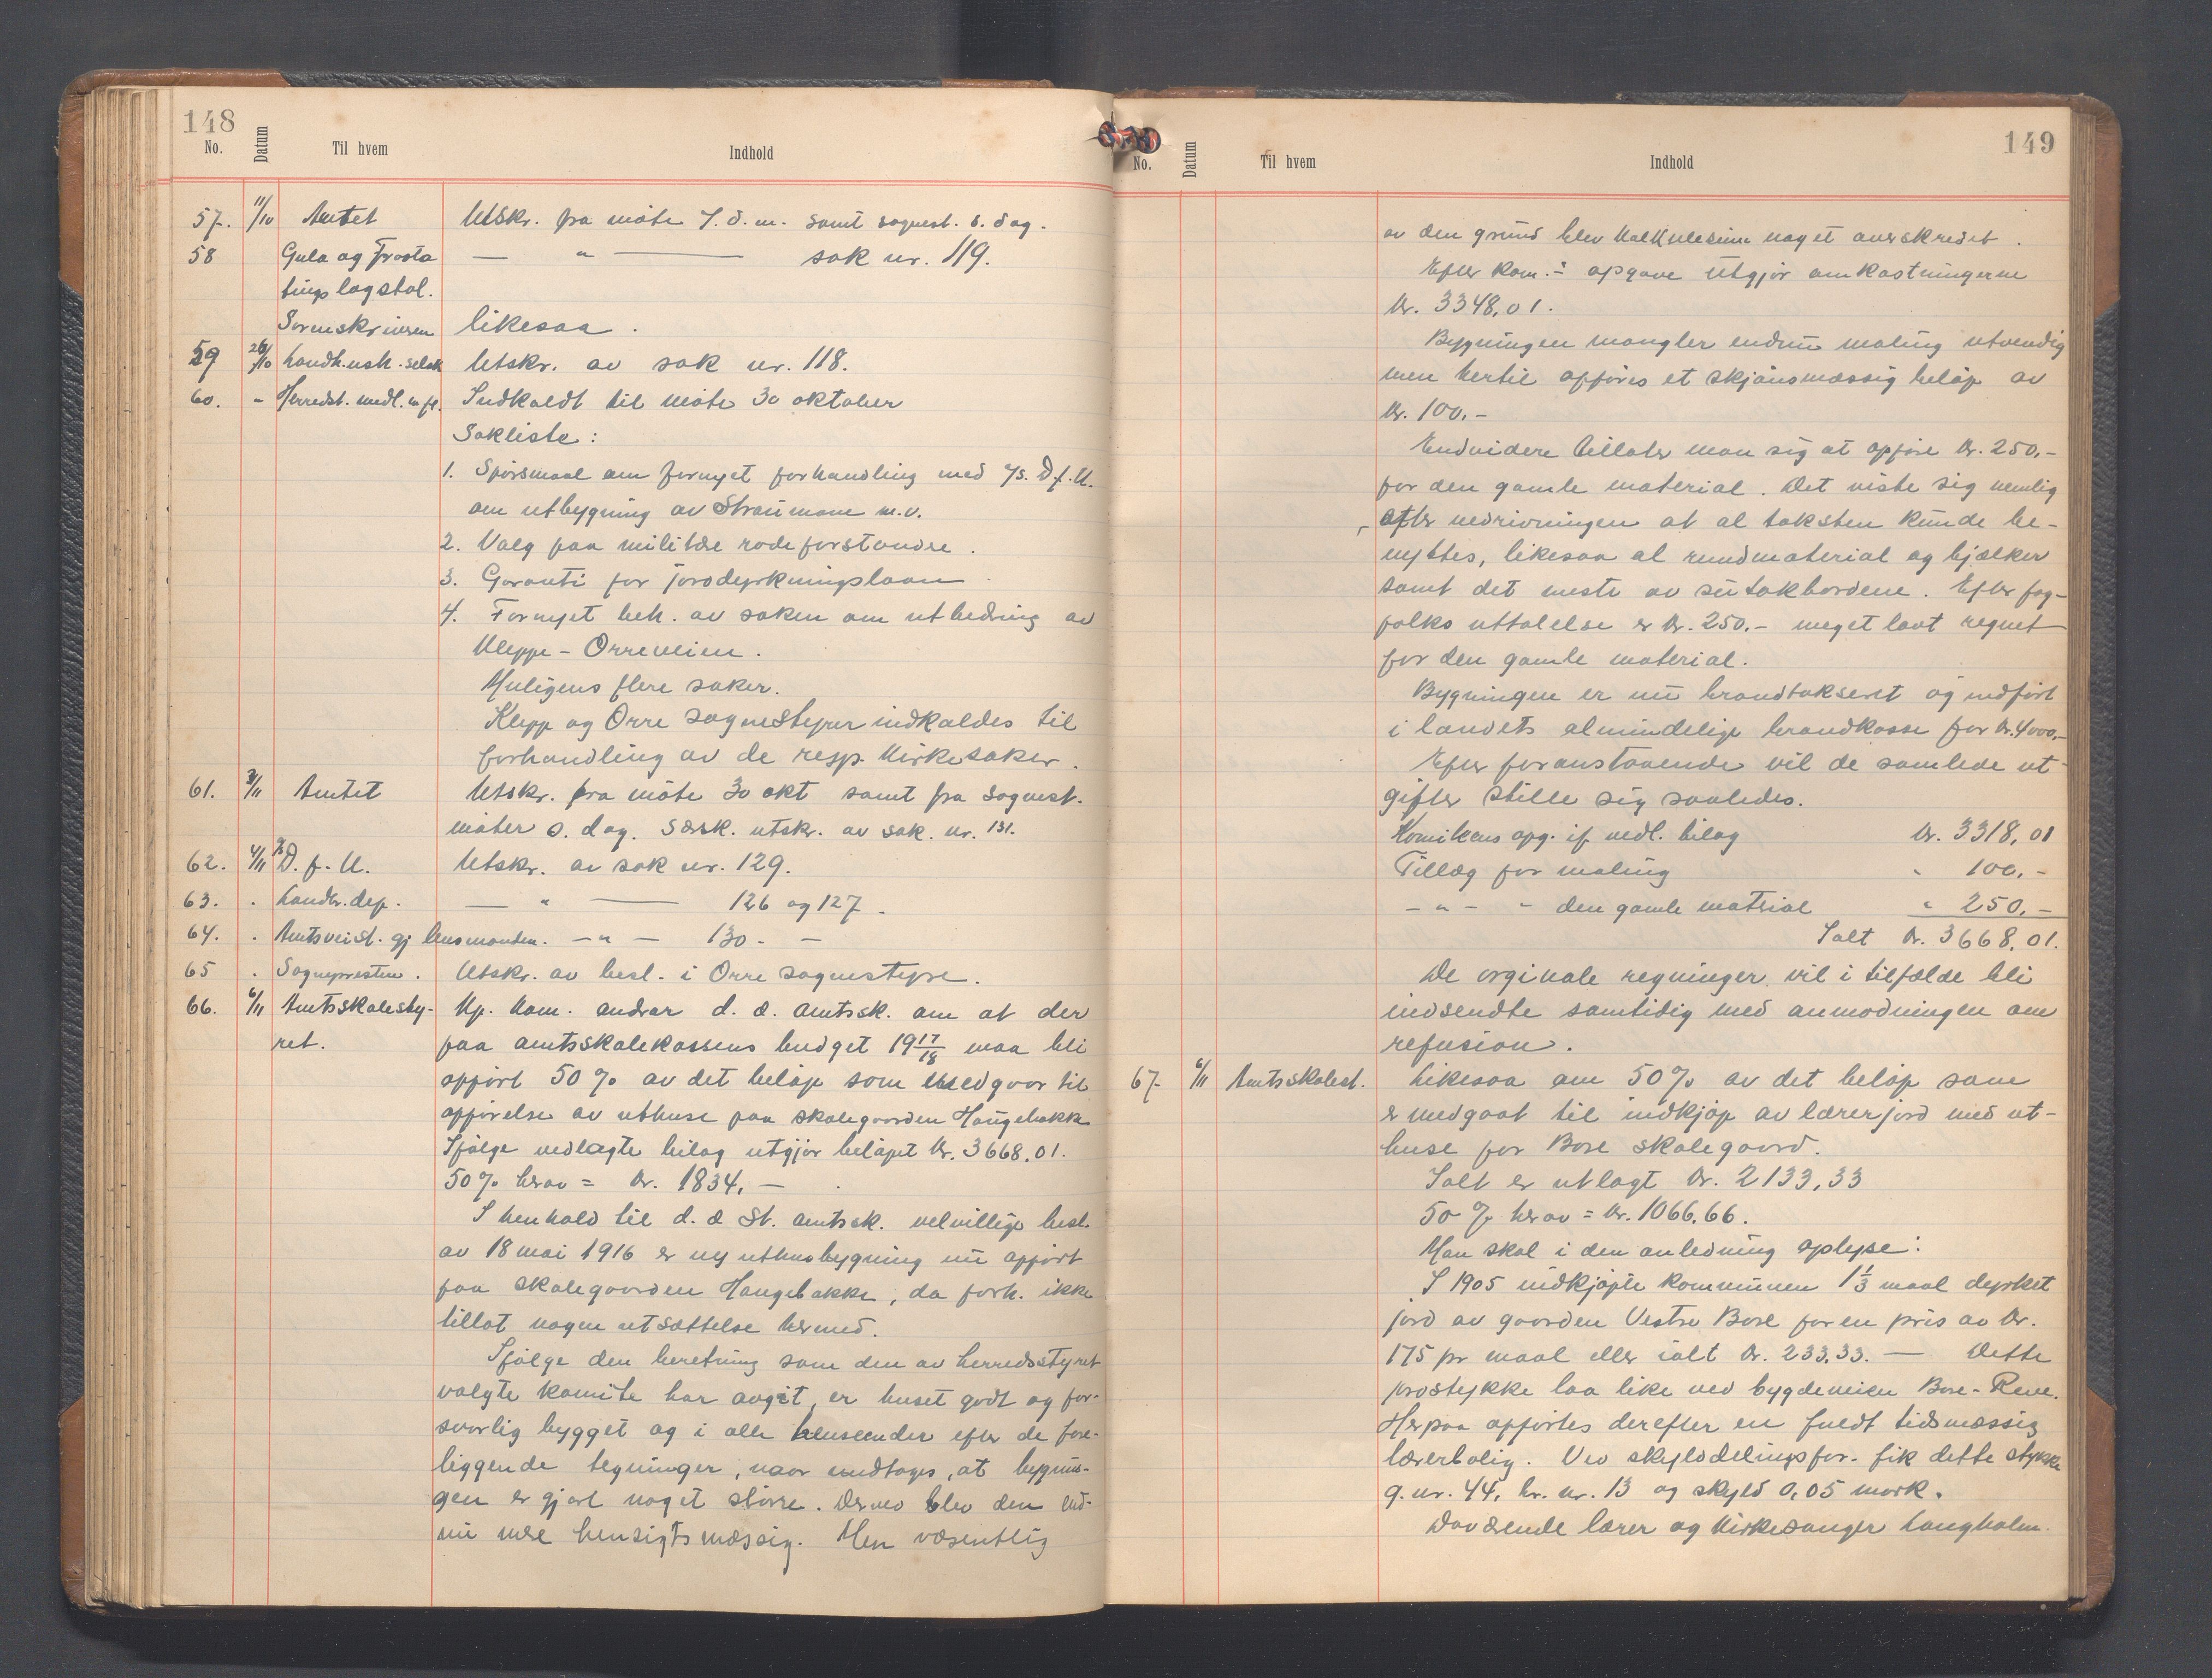 148
No. Datum Til hvem Indhold
57. 11/10 Amtet Utskr. fra møte 7. d. m. samt sognest. s. dag.
58 Gula og Frosta — " — sak nr. 119.
tings lagstol.
Sorenskriveren likesaa.
59 26/10 Landh.ush.selsk Utskr. av sak nr. 118.
60. " Herredst. medl. m fl. Indkaldt til møte 30 oktober
Sakliste:
1. Spørsmaal om fornyet forhandling med A/S. D.f.U.
om utbygning av Straumane m.v.
2. Valg paa militære rodeforstandre.
3. Garanti for jorddyrkningslaan.
4. Fornyet beh. av saken om utbedring av
Kleppe - Orreveien.
Muligens flere saker.
Klepp og Orre sognestyrer indkaldes til
forhandling av de resp. kirkesaker.
61. 3/11 Amtet Utskr. fra møte 30 okt samt fra sognest.
møter s. dag. Særsk. utskr. av sak. nr. 131.
62. 4/11 A/S D. f. U. Utskr. av sak nr. 129.
63. . Landbr. dep. — " — 126 og 127.
64. . Amtsveist. gj lensmanden. — " — 130 - —
65 . Sognepresten. Utskr. av besl. i Orre sognestyre.
66. 6/11 Amtsskolesty- Kp. kom. andrar d. æ. amtssk. om at der
ret. paa amtsskolekassens budget 19 17/18 maa bli
opført 50 % av det beløp som medgaar til
opførelse av uthuse paa skolegaarden Haugebakke
Ifølge vedlagte bilag utgjør beløpet kr. 3668.01.
50% herav = kr. 1834, —
I henhold til d. æ St. amtssk. velvillige besl.
av 18 mai 1916 er ny uthusbygning nu opført
paa skolegaarden Haugebakke, da forh. ikke
tillot nogen utsættelse hermed.
Ifølge den beretning som den av herredsstyret
valgte komite har avgit, er huset godt og for-
svarlig bygget og i alle henseender efter de fore-
liggende tegninger, naar undtages, at bygnin-
gen er gjort noget større. Derved blev den end-
nu mere hensigtsmæssig. Men væsentlig
149
No. Datum Til hvem Indhold
av den grund blev kalkulesum noget overskredet.
Efter kom.: opgave utgjør omkostningerne
kr. 3348,01.
Bygningen mangler endnu maling utvendig
men hertil opføres et skjønsmæssig beløp av
kr. 100.-
Endvidere tillater man sig at opføre kr. 250,-
for den gamle material. Det viste sig nemlig
efter nedrivningen at al taksten kunde be-
nyttes, likesaa al rundmaterial og bjælker
samt det meste av sutakbordene. Efter fag-
folks uttalelse er kr. 250.- meget lavt regnet
for den gamle material.
Bygningen er nu brandtakseret og indført
i landets almindelige brandkasse for kr. 4000,-
Efter foranstaaende vil de samlede ut
gifter stille sig saaledes.
Komiteens opg. if. vedl. bilag kr. 3318,01
Tillæg for maling " 100,-
- " - " den gamle matrial " 250,-
Ialt kr. 3668,01.
De orginale regninger vil i tilfælde bli
indsendte samtidig med anmodningen om
refusion.
67. 6/11 Amtsskolest. Likesaa om 50% av det beløp som
er medgaat til indkjøp av lærerjord med ut-
huse for Bore skolegaard.
Ialt er utlagt kr. 2133,33
50 % herav = kr. 1066,66.
Man skal i den anledning oplyse:
I 1905 indkjøpte kommunen 1 1/3 maal dyrket
jord av gaarden Vestre Bore for en pris av kr.
175 pr maal eller ialt kr. 233,33. — Dette
jordstykke laa like ved bygdeveien Bore - Reve.
Herpaa opførtes derefter en fuldt tidsmæssig
lærerbolig. Ved skylddelingsfor. fik dette stykke
g. nr. 44, br. nr. 13 og skyld 0,05 mark.
Daværende lærer og kirkesanger Langholm